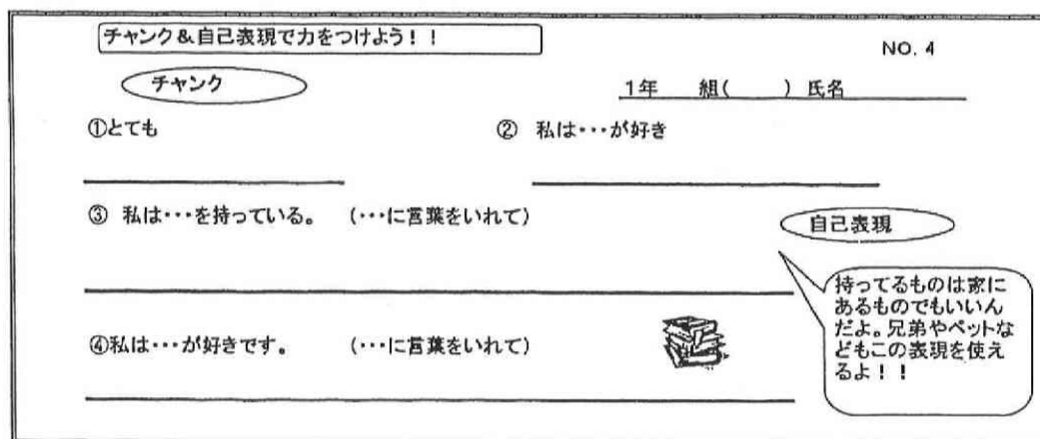 チャンク&自己表現で力をつけよう!!
NO. 4
チャンク
1年　組(　　) 氏名
①とても
② 私は・・・が好き
③ 私は・・・を持っている。　(・・・に言葉をいれて)
自己表現
持ってるものは家に
あるものでもいいん
だよ。兄弟やペットな
どもこの表現を使え
るよ!!
④私は・・・が好きです。　(・・・に言葉をいれて)